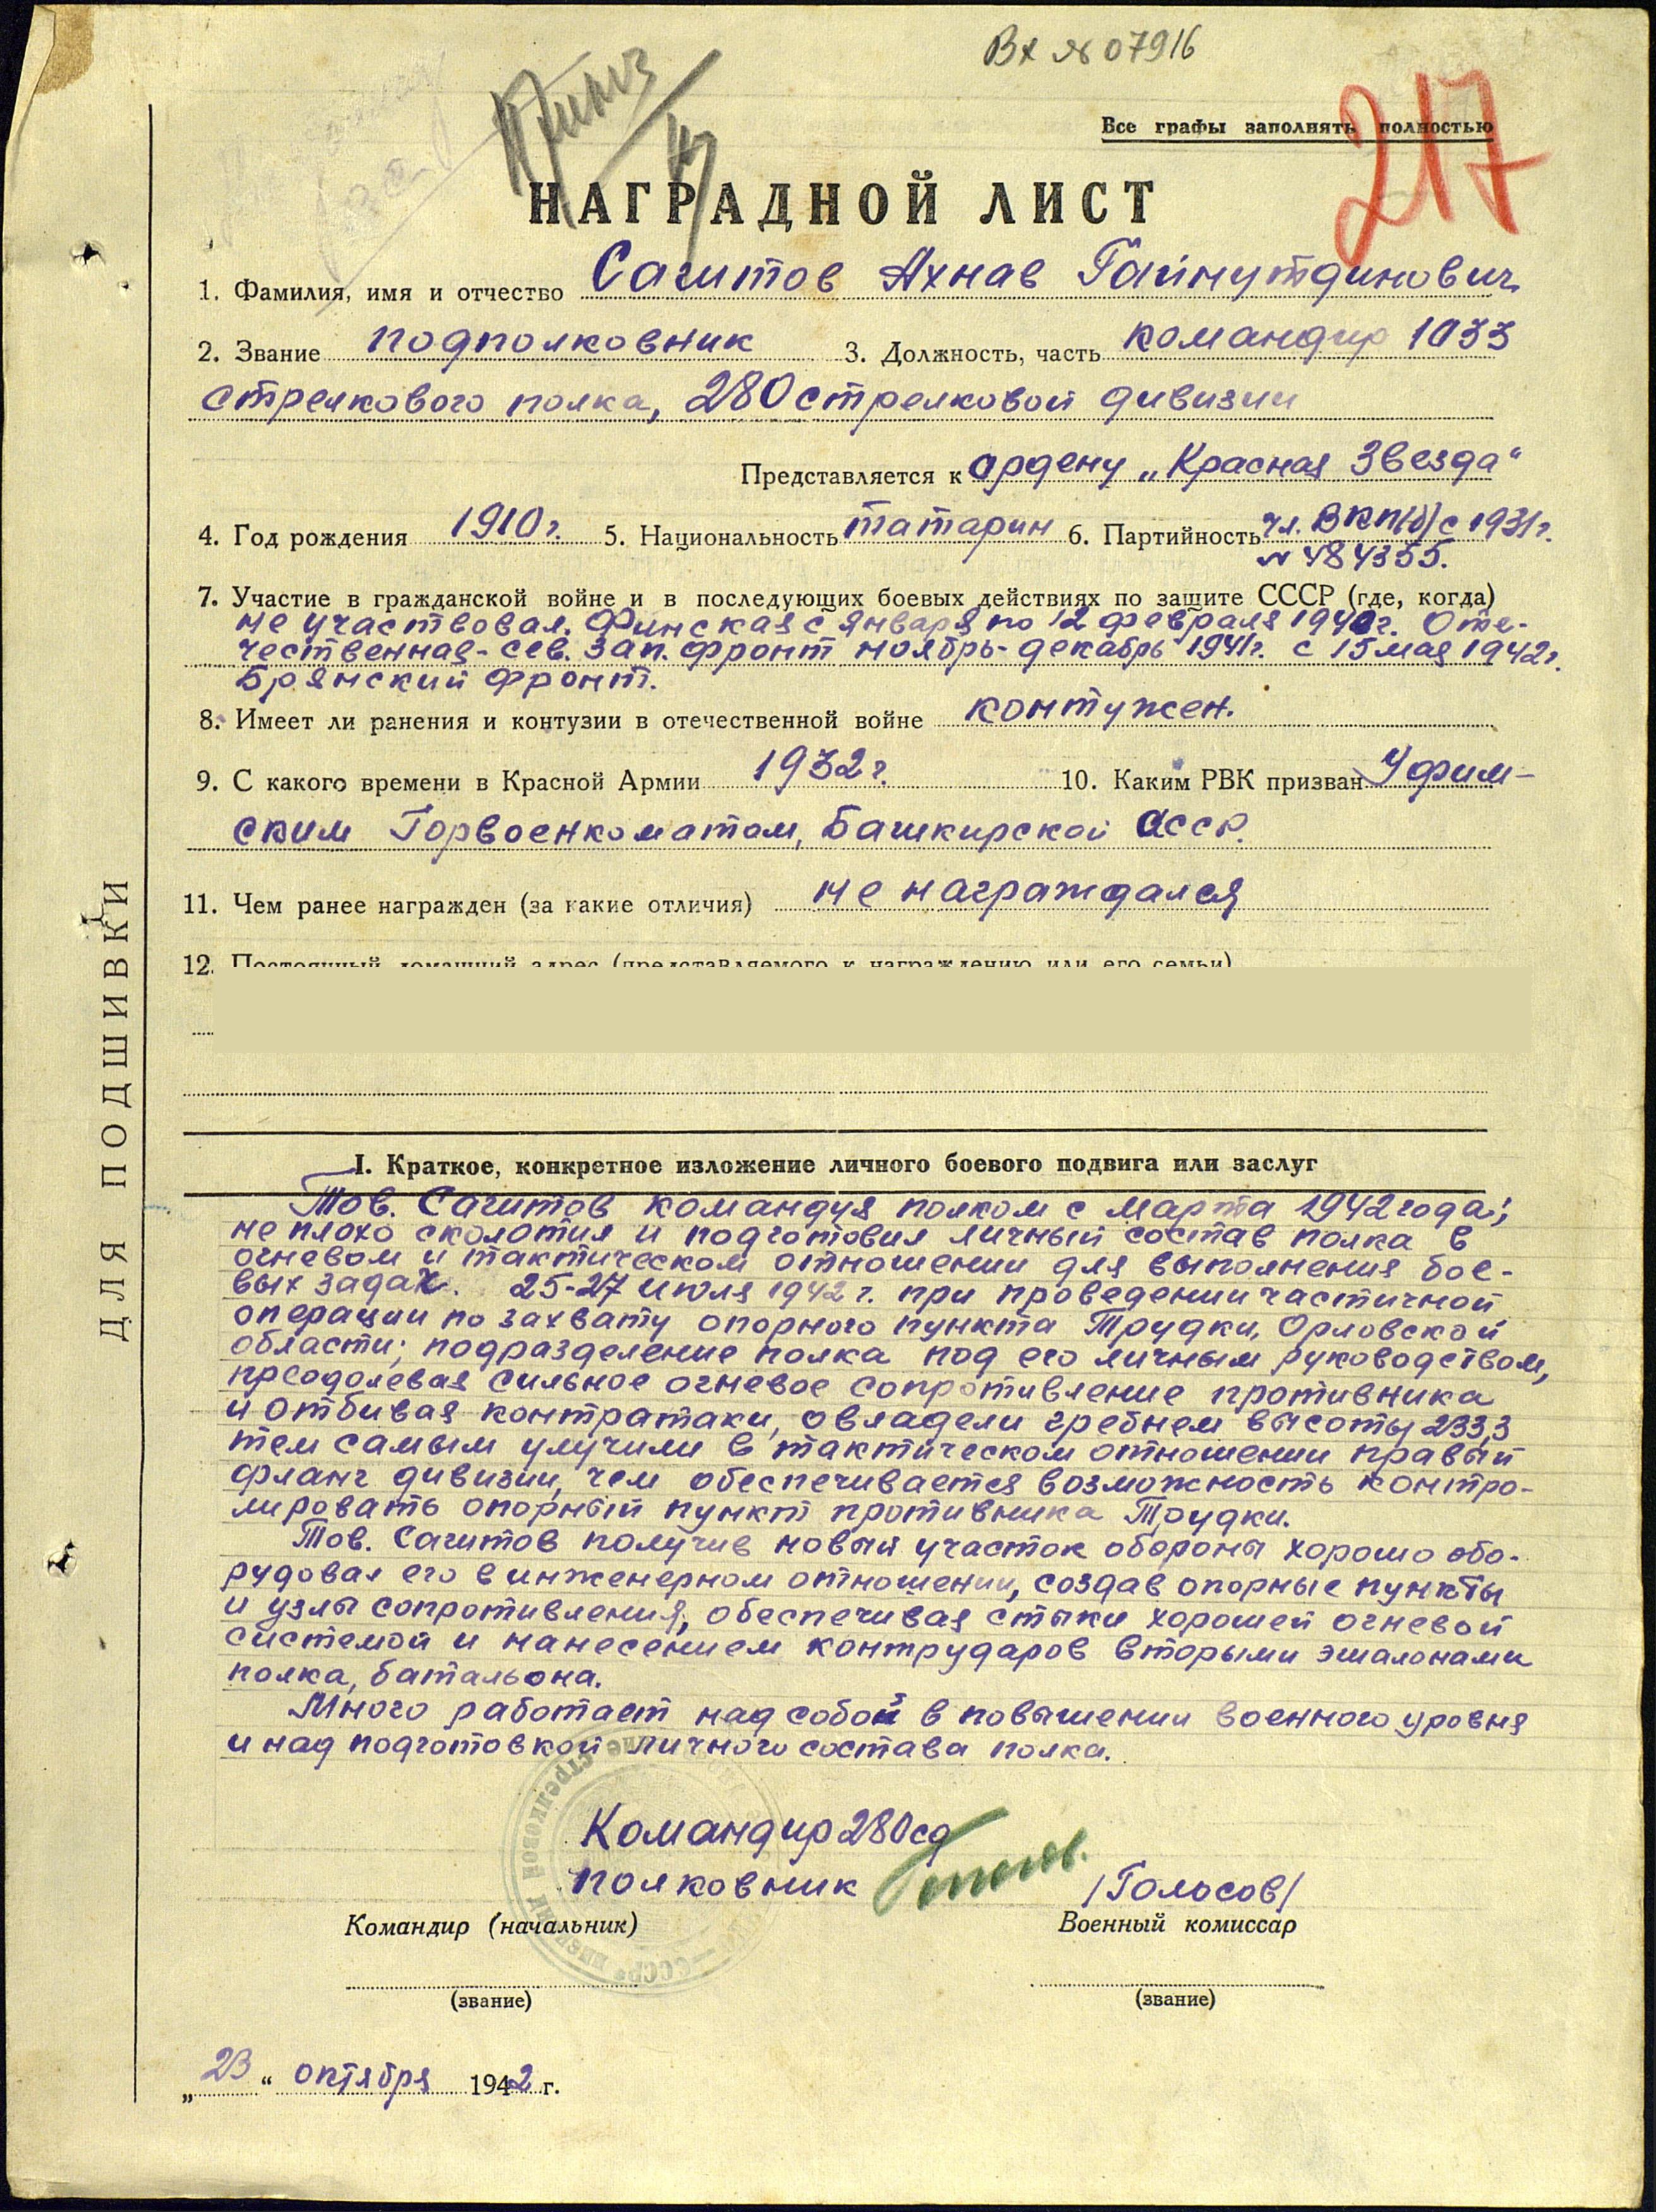 Вх № 07916
217
Все графы заполнять полностью
НАГРАДНОЙ ЛИСТ
1. Фамилия, имя и отчество Сагитов Ахнав Гайнутдинович
2. Звание подполковник 3. Должность, часть командир 1033
стрелкового полка, 280 стрелковой дивизии
Представляется к ордену „Красная Звезда“
4. Год рождения 1910 г. 5. Национальность татарин 6. Партийность чл. ВКП(б) с 1931 г.
№ 484355.
7. Участие в гражданской войне и в последующих боевых действиях по защите СССР (где, когда)
не участвовал. Финская с января по 12 февраля 1940 г. Оте-
чественная - сев. зап. фронт ноябрь-декабрь 1941 г. с 15 мая 1942 г.
Брянский фронт.
8. Имеет ли ранения и контузии в отечественной войне контужен.
9. С какого времени в Красной Армии 1932 г. 10. Каким РВК призван Уфим-
ским Горвоенкоматом, Башкирской АССР.
11. Чем ранее награжден (за какие отличия) не награждался
12. Постоянный домашний адрес (представляемого к награждению или его семьи)
ДЛЯ ПОДШИВКИ
I. Краткое, конкретное изложение личного боевого подвига или заслуг
Тов. Сагитов командуя полком с марта 1942 года;
не плохо сколотил и подготовил личный состав полка в
огневом и тактическом отношении для выполнения бое-
вых задач. 25-27 июля 1942 г. при проведении частичной
операции по захвату опорного пункта Трудки, Орловской
области; подразделение полка под его личным руководством,
преодолевая сильное огневое сопротивление противника
и отбивая контратаки, овладели гребнем высоты 233,3
тем самым улучили в тактическом отношении правый
фланг дивизии, чем обеспечивается возможность контро-
лировать опорный пункт противника Трудки.
Тов. Сагитов получив новый участок обороны хорошо обо-
рудовал его в инженерном отношении, создав опорные пункты
и узлы сопротивления, обеспечивая стыки хорошей огневой
системой и нанесением контрударов вторыми эшалонами
полка, батальона.
Много работает над собой в повышении военного уровня
и над подготовкой личного состава полка.
Командир 280 сд
полковник /Голосов/
Командир (начальник) Военный комиссар
(звание) (звание)
„23“ октября 1942 г.